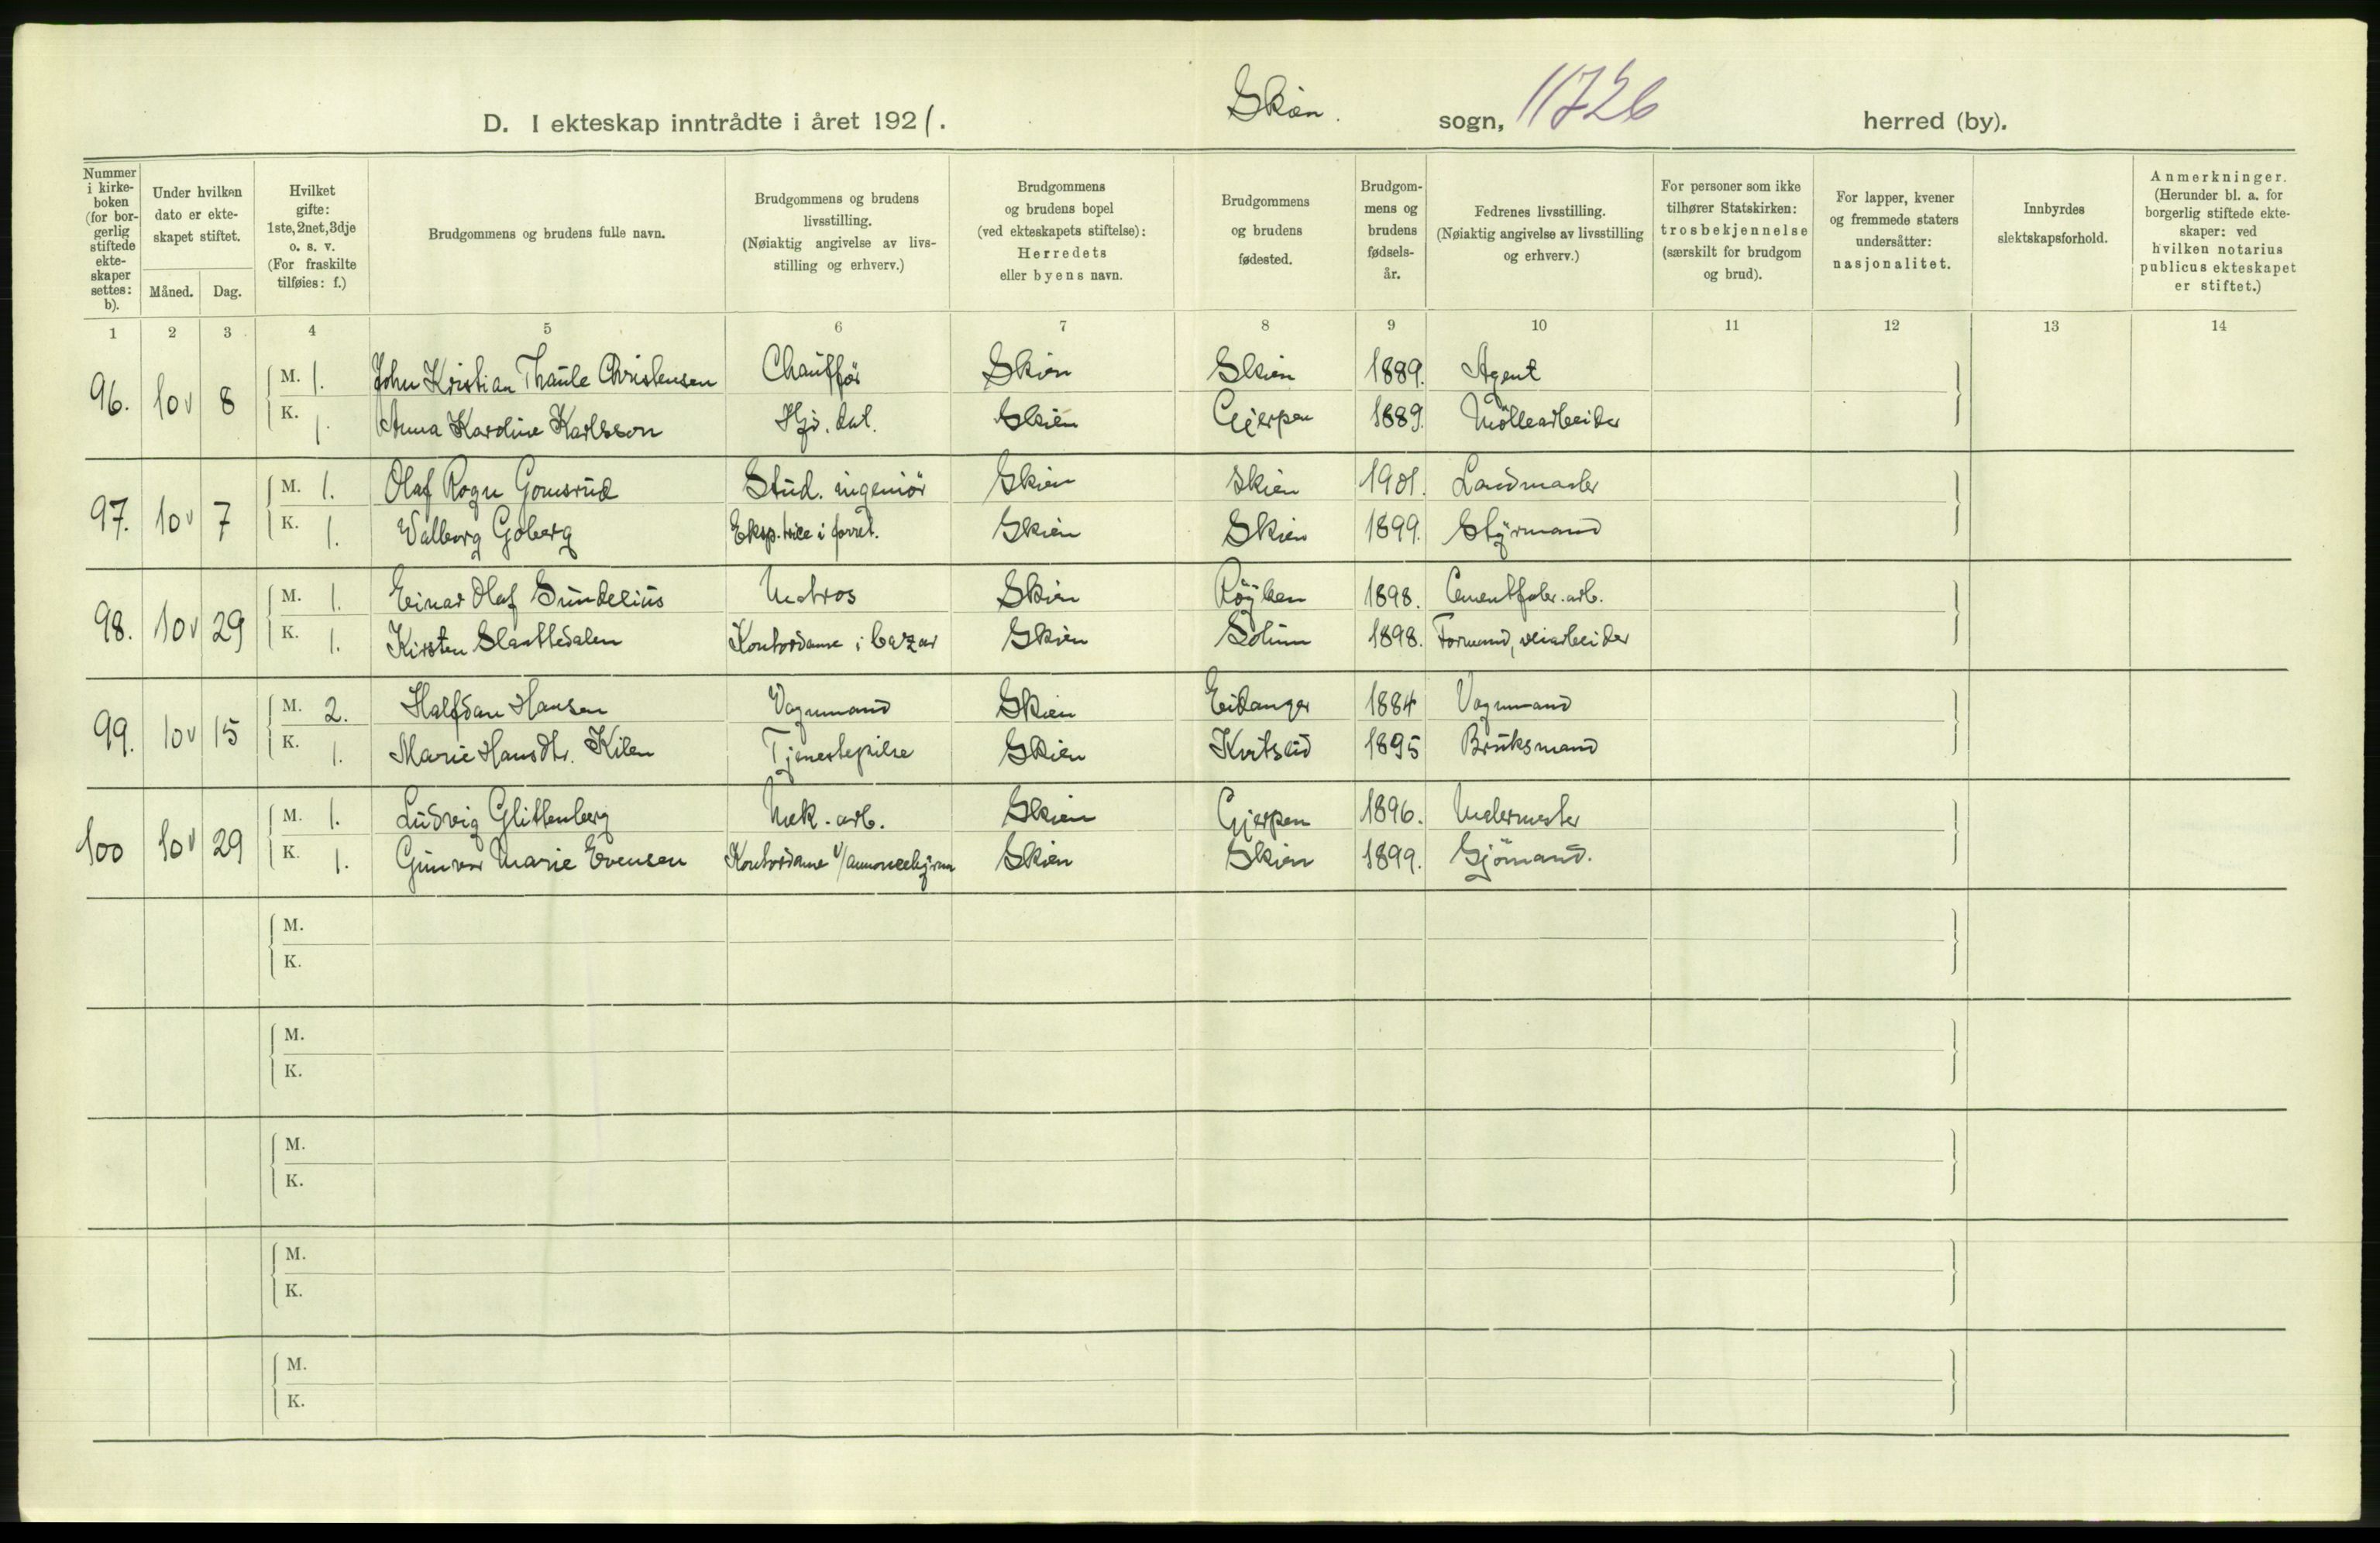 D. I ekteskap inntrådte i året 1921. Skien. sogn, 11726 herred (by).
Nummer i kirke-boken (for bor-gerlig stiftede ekte-skaper settes: b).
Under hvilken dato er ekte-skapet stiftet.
Måned. Dag.
Hvilket gifte: 1ste, 2net, 3dje o. s. v. (For fraskilte tilføies: f.)
Brudgommens og brudens fulle navn.
Brudgommens og brudens livsstilling. (Nøiaktig angivelse av livs-stilling og erhverv.)
Brudgommens og brudens bopel (ved ekteskapets stiftelse): Herredets eller byens navn.
Brudgommens og brudens fødested.
Brudgom-mens og brudens fødsels-år.
Fedrenes livsstilling. (Nøiaktig angivelse av livsstilling og erhverv.)
For personer som ikke tilhører Statskirken: trosbekjennelse (særskilt for brudgom og brud).
For lapper, kvener og fremmede staters undersåtter: nasjonalitet.
Innbyrdes slektskapsforhold.
Anmerkninger. (Herunder bl. a. for borgerlig stiftede ekte-skaper: ved hvilken notarius publicus ekteskapet er stiftet.)
1 2 3 4 5 6 7 8 9 10 11 12 13 14
96. 10 v 8 M. 1. John Kristian Thaule Christensen Chauffør Skien Skien 1889. Agent
K. 1. Anna Karoline Karlsson Hj. dat. Skien Gjerpen 1889. Möllearbeider
97. 10 v 7 M. 1. Olaf Rogn Gomsrud Stud. ingeniör Skien Skien 1901. Landmand
K. 1. Valborg Goberg Eksp.trice i forret. Skien Skien 1899. Styrmand
98. 10 v 29 M. 1. Einar Olaf Sundelius Matros Skien Röyken 1898. Cementfabr. arb.
K. 1. Kirsten Slaattedalen Kontordame i bazar Skien Solum 1898. Formand, veiarbeider
99. 10 v 15 M. 2. Halfdan Hansen Vognmand Skien Eidanger 1884 Vognmand
K. 1. Marie Hansdtr. Kilen Tjenestepike Skien Kvitseid 1895 Bruksmand
100 10 v 29 M. 1. Ludvig Glittenberg Mek. arb. Skien Gjerpen 1896. Malermester
K. 1. Gunvor Marie Evensen Kontordame v/ Skien Skien 1899. Sjömand.
M.
K.
M.
K.
M.
K.
M.
K.
M.
K.